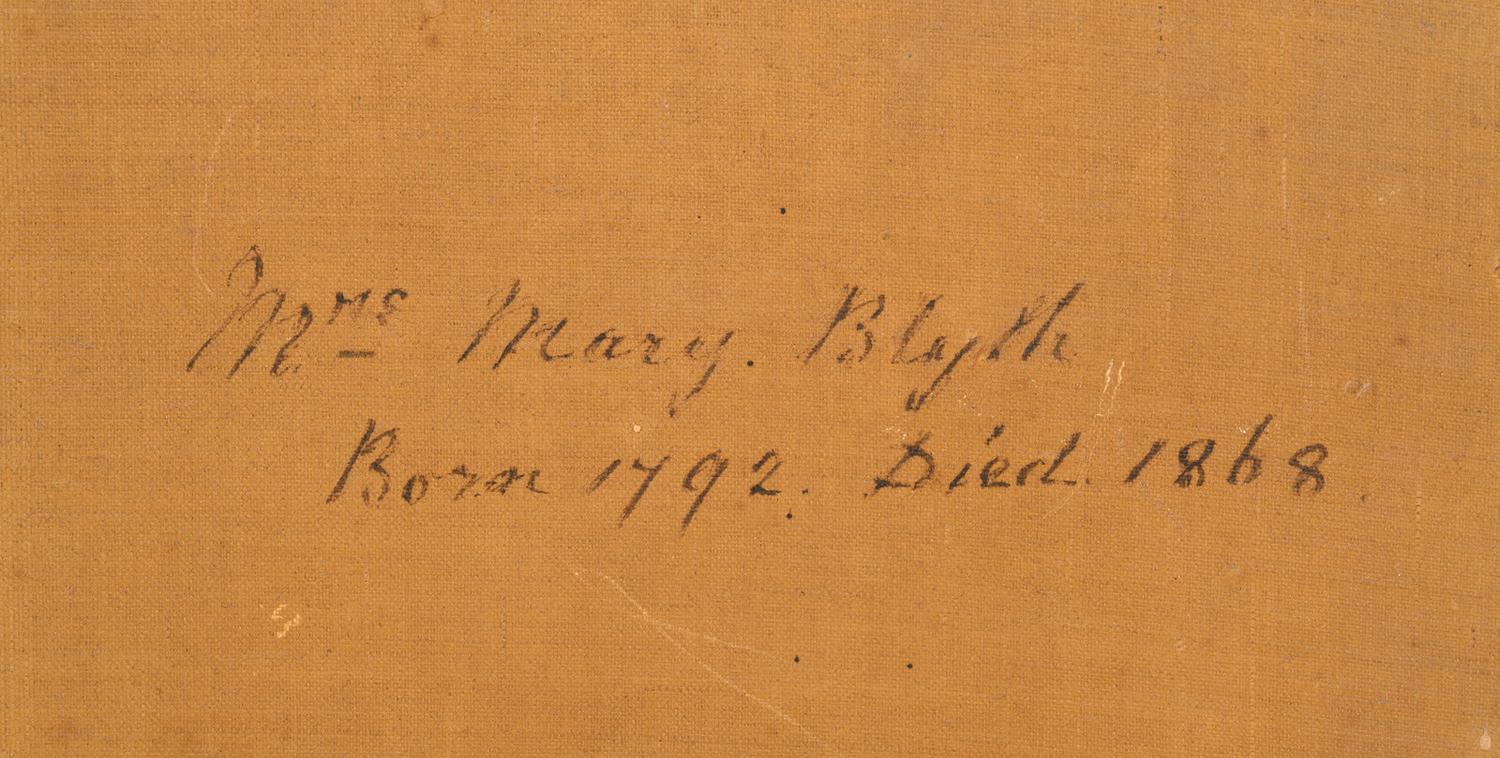 Mrs Mary. Blyth
Born 1792. Died. 1868.